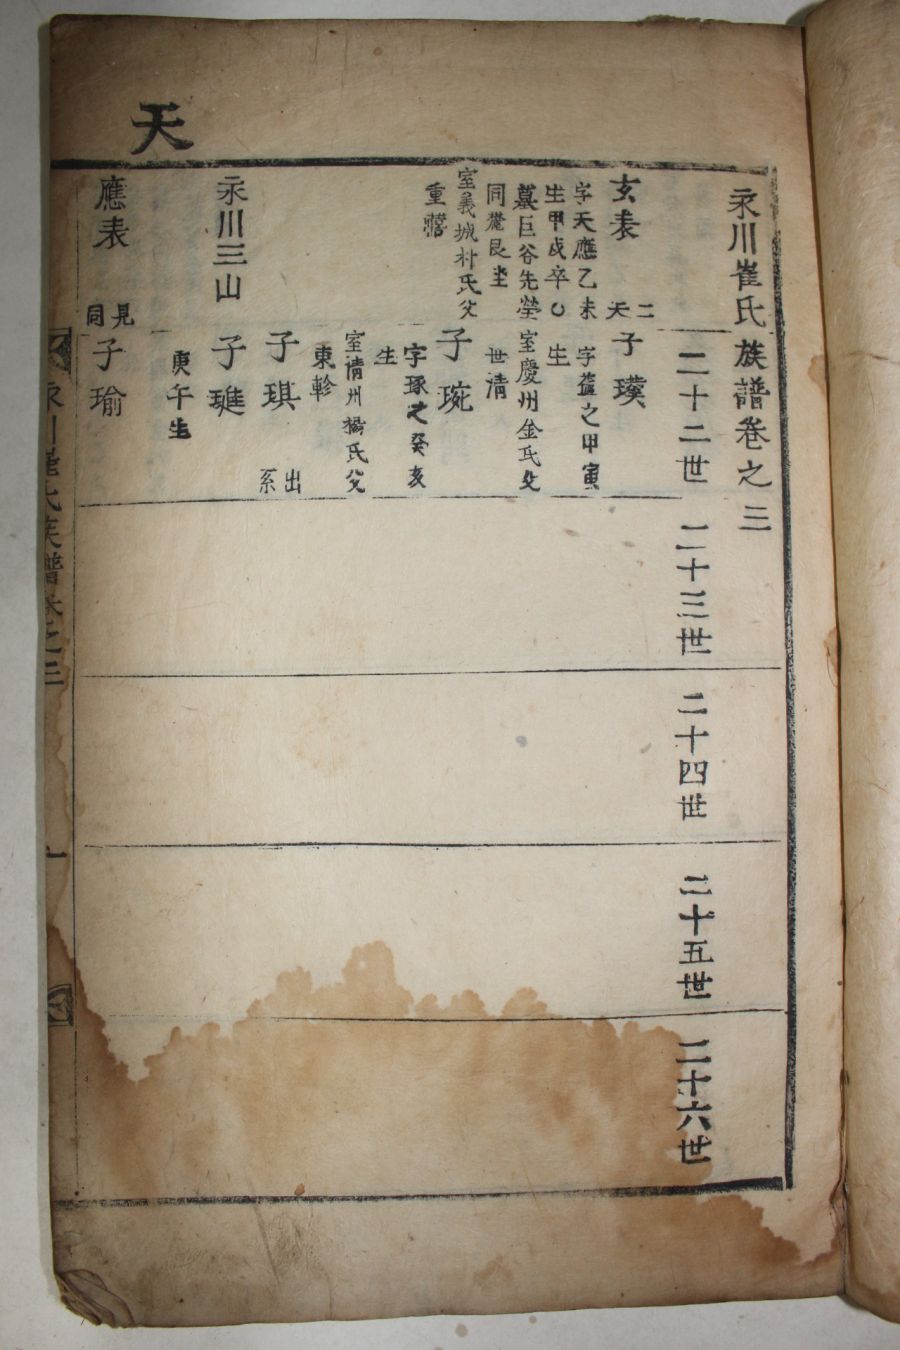 天
永川崔氏族譜卷之三
二十二世
二十三世
二十四世
二十五世
二十六世
玄表
二
天
字天應乙未
生甲戌卒〇
墓巨谷先塋
同麓艮坐
室義城朴氏父
重
子璞
字蘊之甲寅
生
室慶州金氏父
世清
子琬
字琢之癸亥
生
室清州楊氏父
東軫
子琪
出
系
永川三山
子璡
庚午生
應表
晃
同
子瑜
永川崔氏族譜卷之三
一